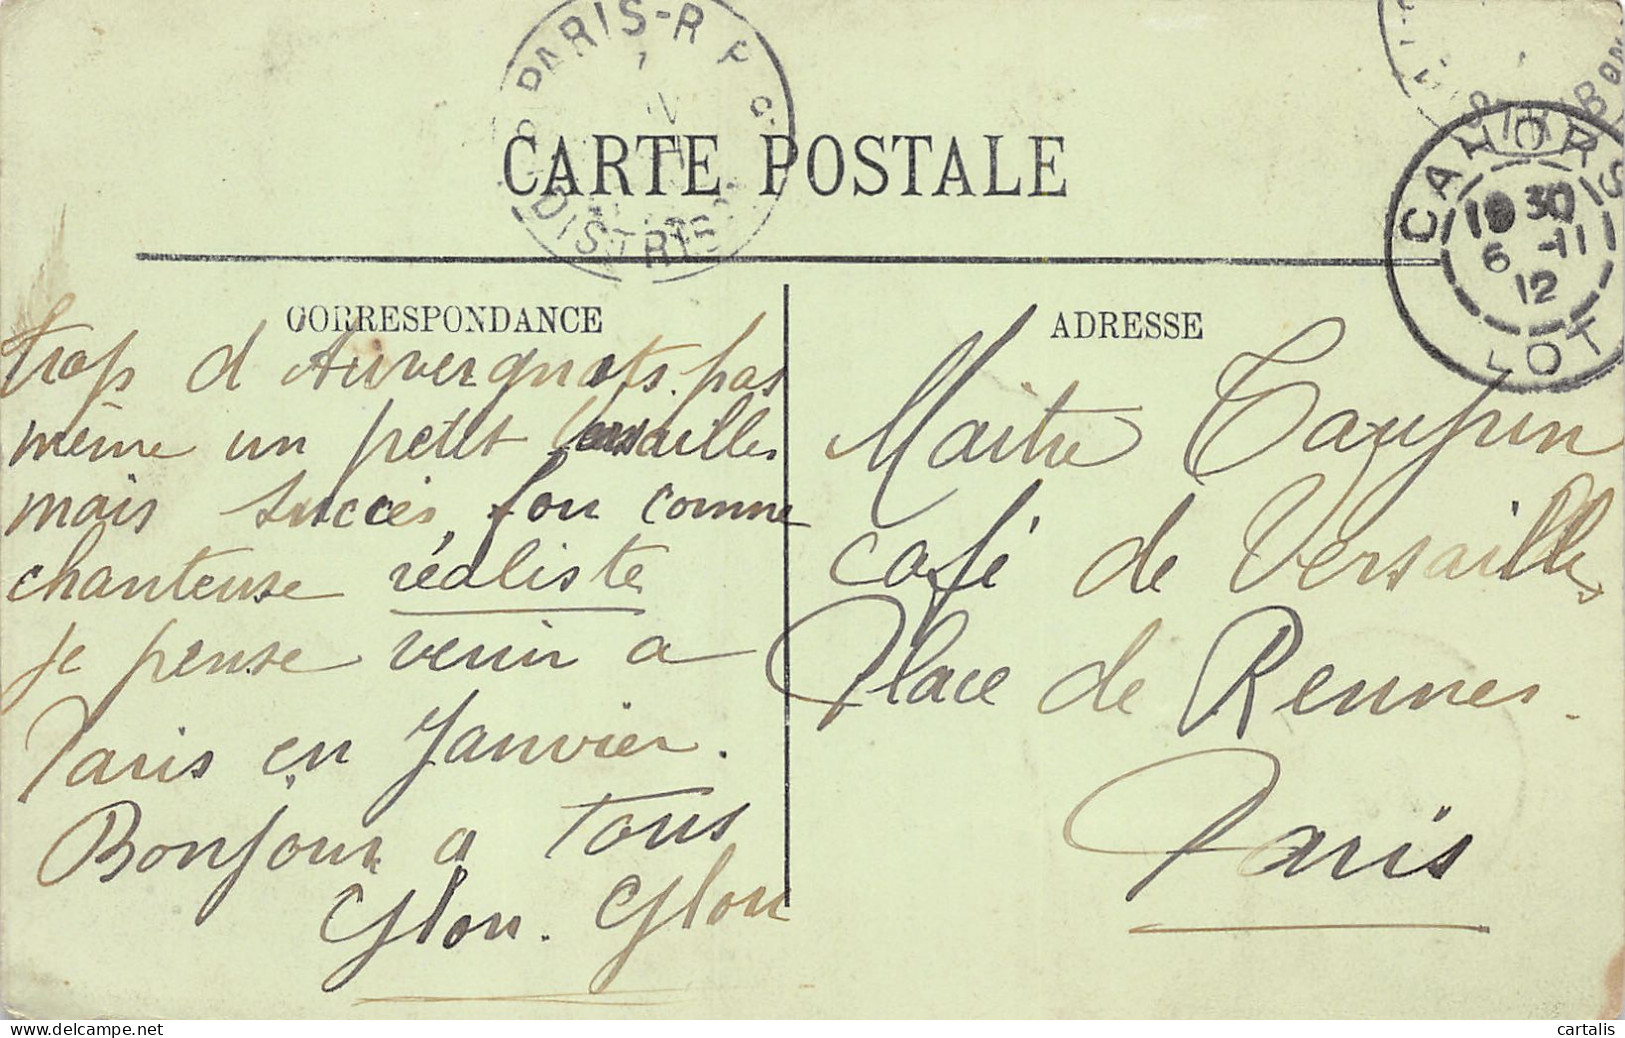 PARIS-R P
DISTRIB
CARTE POSTALE
CAHORS
30
6 -11
12
LOT
CORRESPONDANCE
trop d'Auvergnats. pas
même un petit Versailles
mais succès fou comme
chanteuse réaliste
je pense venir a
Paris en Janvier.
Bonjour a Tous
Glou. Glou
ADRESSE
Maitre Taupin
Café de Versailles
Place de Rennes.
Paris
cartalis